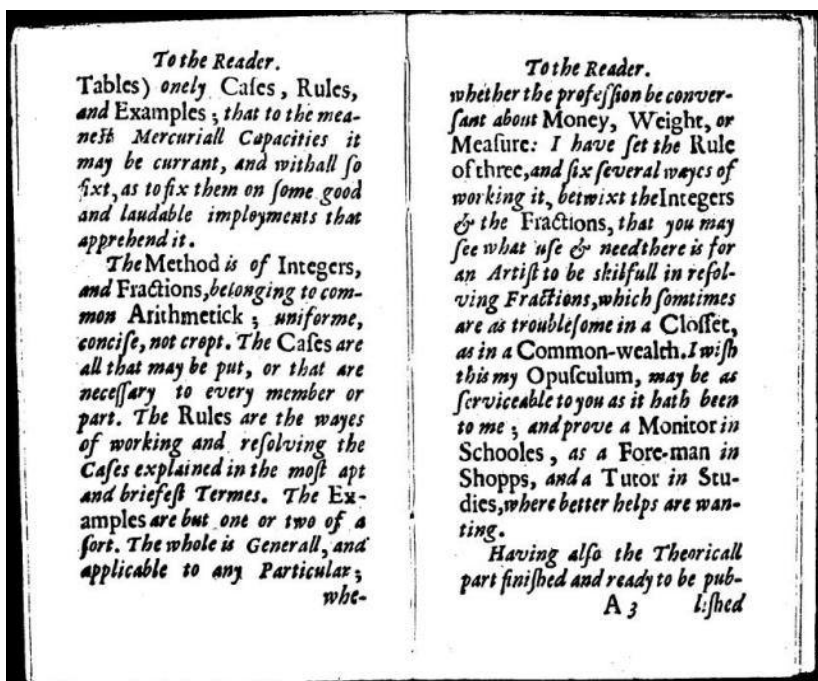 To the Reader.
Tables) onely Caſes, Rules,
and Examples; that to the mea-
neſt Mercuriall Capacities it
may be currant, and withall ſo
fixt, as to fix them on ſome good
and laudable imployments that
apprehend it.
The Method is of Integers,
and Fractions, belonging to com-
mon Arithmetick; uniforme,
conciſe, not cropt. The Caſes are
all that may be put, or that are
neceſſary to every member or
part. The Rules are the wayes
of working and reſolving the
Caſes explained in the moſt apt
and briefeſt Termes. The Ex-
amples are but one or two of a
ſort. The whole is Generall, and
applicable to any Particular;
whe-
To the Reader.
whether the profeſſion be conver-
ſant about Money, Weight, or
Meaſure: I have ſet the Rule
of three, and ſix ſeveral wayes of
working it, betwixt the Integers
& the Fractions, that you may
ſee what uſe & need there is for
an Artiſt to be skilfull in reſol-
ving Fractions, which ſomtimes
are as troubleſome in a Cloſſet,
as in a Common-wealth. I wiſh
this my Opuſculum, may be as
ſerviceable to you as it hath been
to me; and prove a Monitor in
Schooles, as a Fore-man in
Shopps, and a Tutor in Stu-
dies, where better helps are wan-
ting.
Having alſo the Theoricall
part finiſhed and ready to be pub-
A 3 liſhed